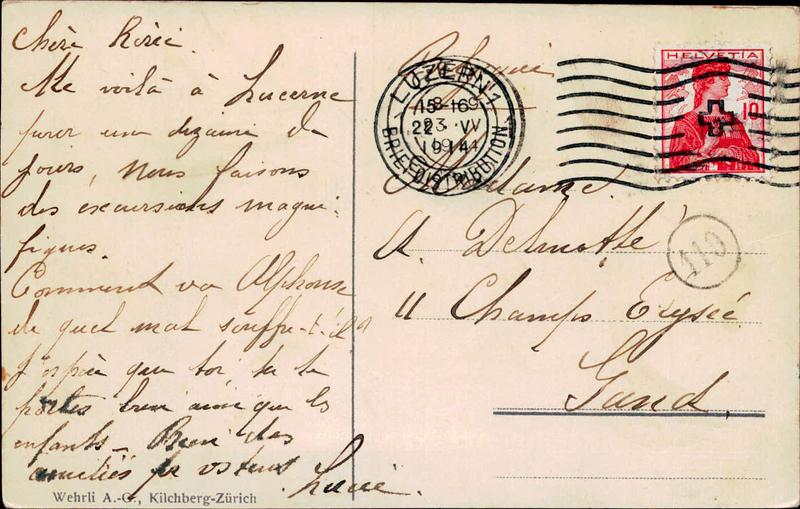 Chère
Me voilà à Lucerne
pour une dizaine de
jours, nous faisons
des excursions magni-
fiques.
Comment va Alphonse
de quel mal souffre-t-il
J'espère que toi tu te
portes bien ainsi que les
enfants_ Bien des
amitiés pr vs tous
Lucie.
Wehrli A.-G., Kilchberg-Zürich
LUZERN 1
BRIEFDISTRIBUTION
HELVETIA
10
Madame
A. Delmotte
11 Champs Elysée
Gand.
119